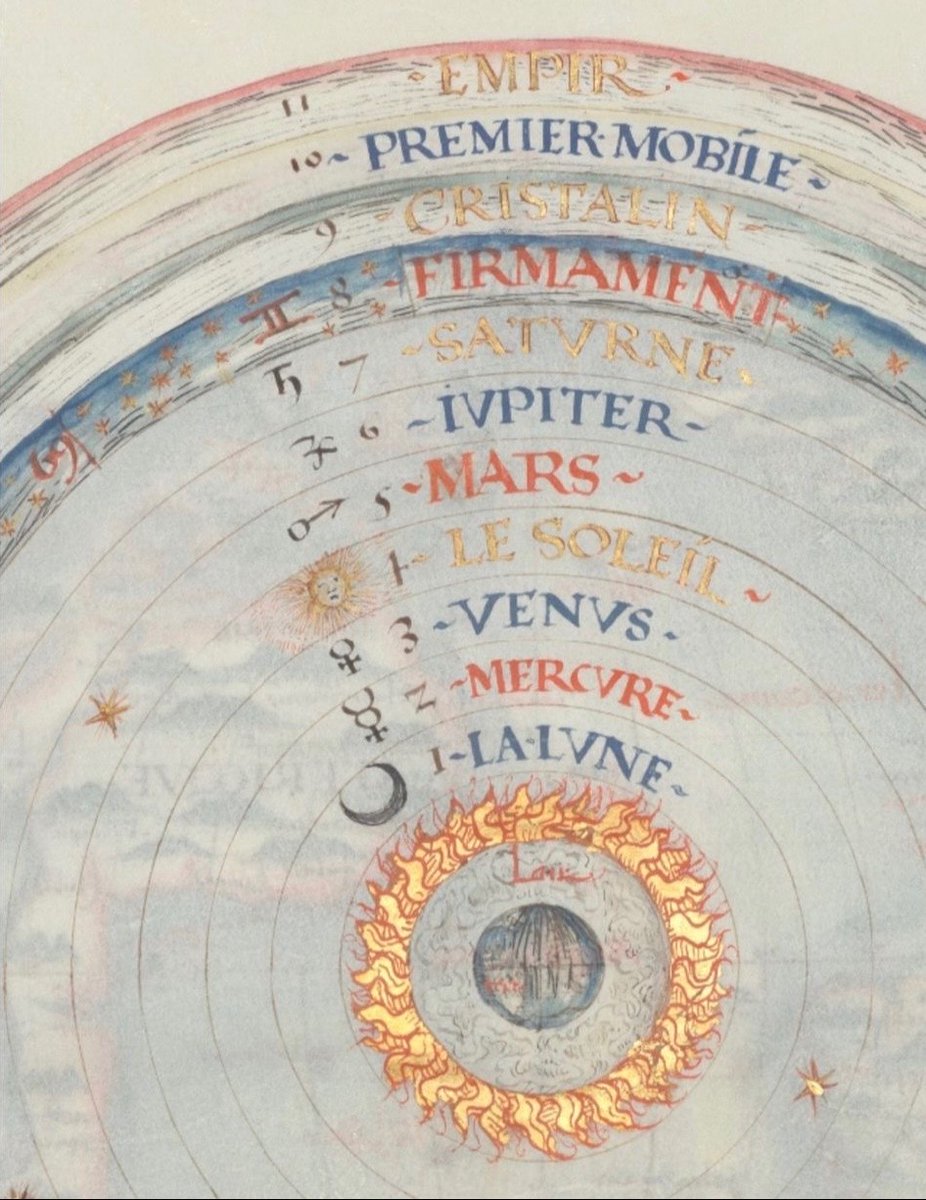 11 ~ EMPIR ~
10 ~ PREMIER·MOBILE ~
9 ~ CRISTALIN ~
♊ 8 ~ FIRMAMENT ~
♋
♄ 7 ~ SATVRNE ~
♃ 6 ~ IVPITER ~
♂ 5 ~ MARS ~
4 ~ LE SOLEIL ~
♀ 3 ~ VENVS ~
☿ 2 ~ MERCVRE ~
☾ 1 ~ LA·LVNE ~